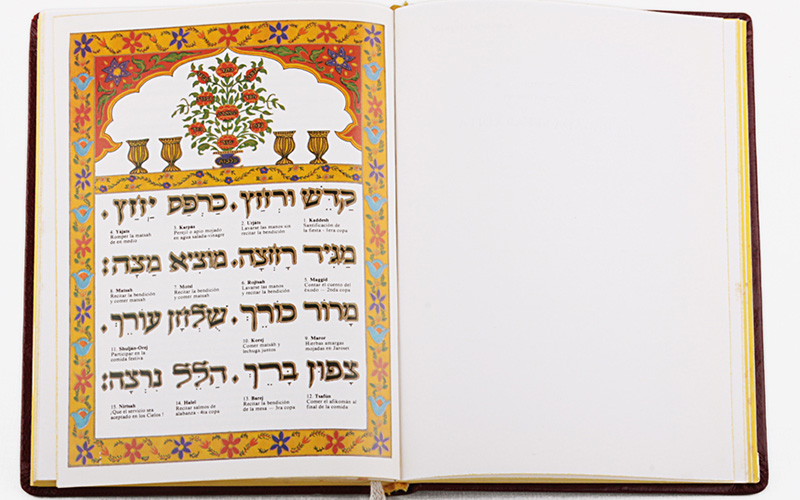 קַדֵּשׁ וּרְחַץ. כַּרְפַּס יַחַץ.
1. Kaddesh
Santificación de
la fiesta - 1era copa
2. Urjats
Lavarse las manos sin
recitar la bendición
3. Karpás
Perejil o apio mojado
en agua salada-vinagre
4. Yajats
Romper la matsah
de en medio
מַגִּיד רָחְצָה. מוֹצִיא מַצָּה:
5. Magguid
Contar el cuento del
éxodo — 2nda copa
6. Rojtsah
Lavarse las manos
y recitar la bendición
7. Motsí
Recitar la bendición
y comer matsah
8. Matsah
Recitar la bendición
y comer matsah
מָרוֹר כּוֹרֵךְ. שֻׁלְחָן עוֹרֵךְ.
9. Maror
Hierbas amargas
mojadas en Jaroset
10. Korej
Comer matsah y
lechuga juntos
11. Shuljan-Orej
Participar en la
comida festiva
צָפוּן בָּרֵךְ. הַלֵּל נִרְצָה:
12. Tsafún
Comer el afikomán al
final de la comida
13. Barej
Recitar la bendición
de la mesa — 3ra copa
14. Halel
Recitar salmos de
alabanza - 4ta copa
15. Nirtsah
¡Que el servicio sea
aceptado en los Cielos!